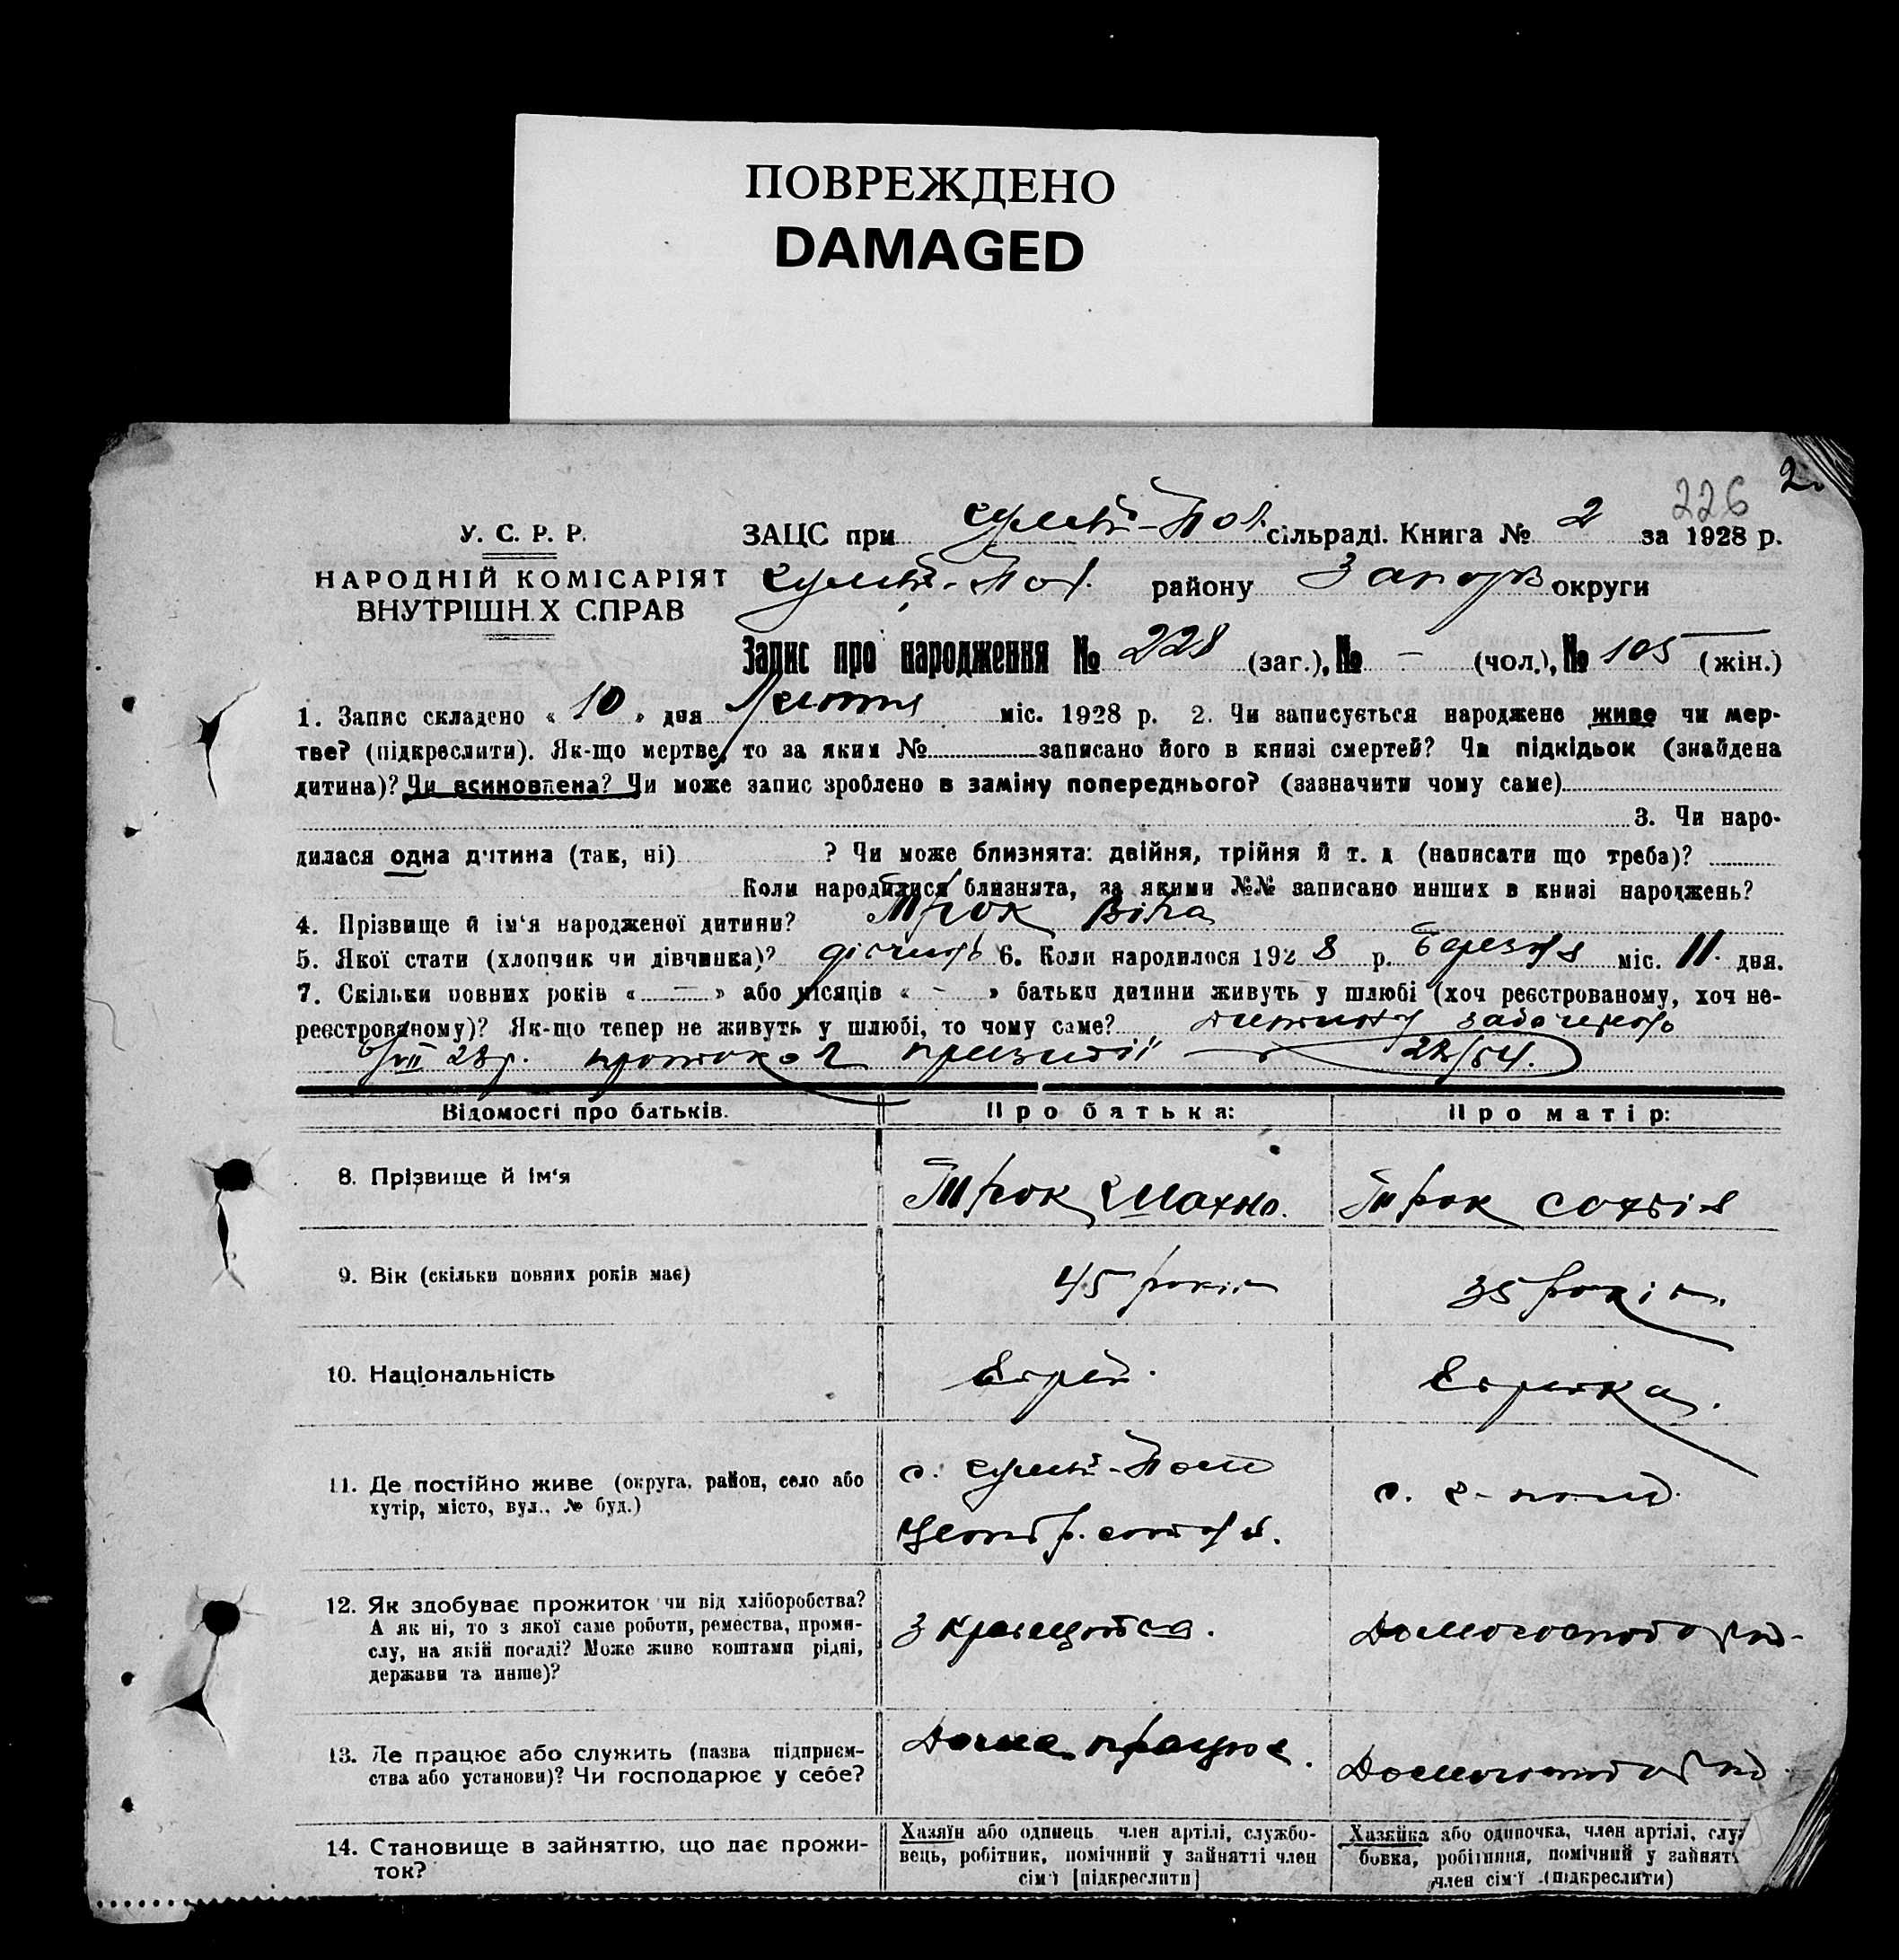 ПОВРЕЖДЕНО
DAMAGED
2
226
У. С. Р. Р.
НАРОДНІЙ КОМІСАРІЯТ
ВНУТРІШН.Х СПРАВ
ЗАЦС при Гуляй-Пол. сільраді. Книга № 2 за 1928 р.
Гуляй-Пол. району Запор округи
Запис про народження № 228 (заг.), № – (чол.), № 105 (жін.)
1. Запис складено « 10 » дня міс. 1928 р. 2. Чи записується народжене живе чи мер-
тве? (підкреслити). Як-що мертве, то за яким № записано його в книзі смертей? Чи підкідьок (знайдена
дитина)? Чи всиновлена? Чи може запис зроблено в заміну попереднього? (зазначити чому саме)
3. Чи наро-
дилася одна дитина (так, ні) ? Чи може близнята: двійня, трійня й т. д (написати що треба)?
Коли народилися близнята, за якими №№ записано инших в книзі народжень?
4. Прізвище й ім'я народженої дитини? Трок Віра
5. Якої стати (хлопчик чи дівчинка)? 6. Коли народилося 192 8 р. березня міс. 11. дня.
7. Скільки повних років « – » або місяців « – » батьки дитини живуть у шлюбі (хоч реєстрованому, хоч не-
реєстрованому)? Як-що тепер не живуть у шлюбі, то чому саме?
28 р. протокол президії 22/54.
Відомості про батьків.
Про батька:
Про матір:
8. Прізвище й ім'я
Трок
Трок Софія
9. Вік (скільки повних років має)
45 років
35 років.
10. Національність
Єврей.
Єврейка.
11. Де постійно живе (округа, район, село або
хутір, місто, вул., № буд.)
с. Гуляй-Поле
с. Г-поле.
12. Як здобуває прожиток чи від хліборобства?
А як ні, то з якої саме роботи, ремества, проми-
слу, на якій посаді? Може живе коштами рідні,
держави та инше)?
З кравецтва.
Домогосподар.
13. Де працює або служить (назва підприєм-
ства або установи)? Чи господарює у себе?
Дома працює.
Домогосподар.
14. Становище в зайняттю, що дає прожи-
ток?
Хазяїн або одинець член артілі, службо-
вець, робітник, помічний у зайнятті член
сім'ї [підкреслити]
Хазяйка або одиночка, член артілі, служ
бовка, робітниця, помічний у зайнят
член сім'ї (підкреслити)